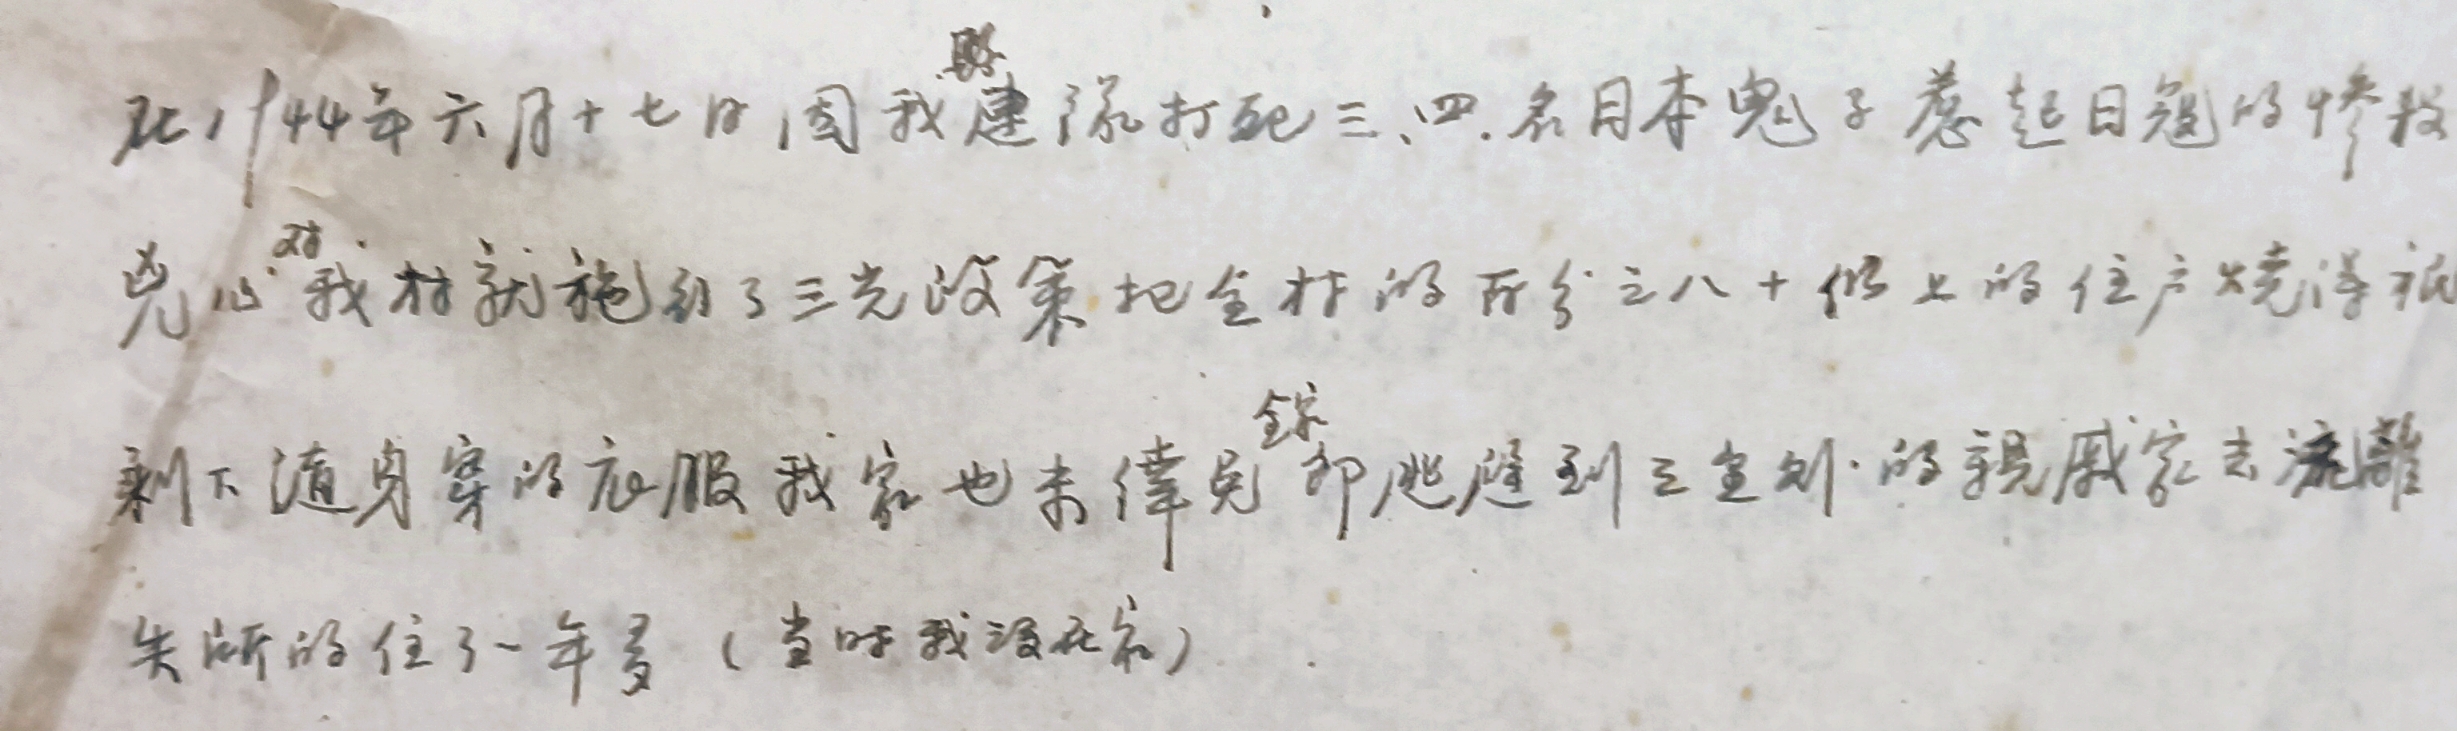 在1944年六月十七日因我縣連隊打死三、四.名日本鬼子惹起日寇的惨殺
兇心对我村就施行了三光政策把全村的百分之八十假上的住户燒得祇
剩下随身穿的衣服我家也未倖免全家即逃避到三室刘.的親戚家去流離
失所的住了一年多(当时我没在家)